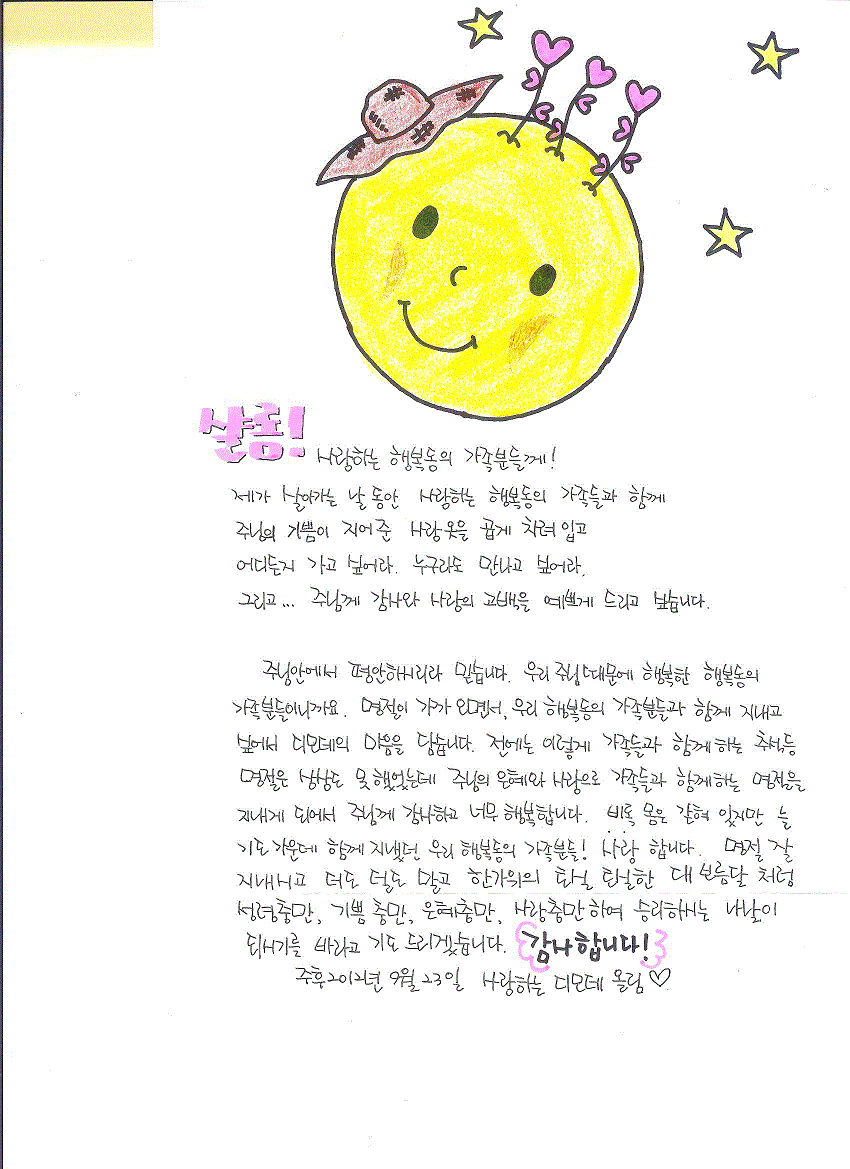 샬롬! 사랑하는 행복동의 가족분들께!
제가 살아가는 날 동안 사랑하는 행복동의 가족들과 함께
주님의 기쁨이 지어준 사랑옷을 곱게 차려 입고
어디든지 가고 싶어라. 누구라도 만나고 싶어라.
그리고... 주님께 감사와 사랑의 고백을 예쁘게 드리고 싶습니다.
주님안에서 평안하시리라 믿습니다. 우리 주님때문에 행복한 행복동의
가족분들이니까요. 명절이 가까오면서, 우리 행복동의 가족분들과 함께 지내고
싶어서 디모데의 마음을 담습니다. 전에는 이렇게 가족들과 함께 하는 추석등
명절은 상상도 못했었는데 주님의 은혜와 사랑으로 가족들과 함께하는 명절을
지내게 되어서 주님께 감사하고 너무 행복합니다. 비록 몸은 갇혀 있지만 늘
기도가운데 함께 지냈던 우리 행복동의 가족분들! 사랑 합니다. 명절 잘
지내시고 더도 덜도 말고 한가위의 토실 토실한 대보름달 처럼
성령충만, 기쁨 충만, 은혜충만, 사랑충만하여 승리하시는 나날이
되시기를 바라고 기도 드리겠습니다. 감사합니다!
주후2012년 9월 23일 사랑하는 디모데 올림♡